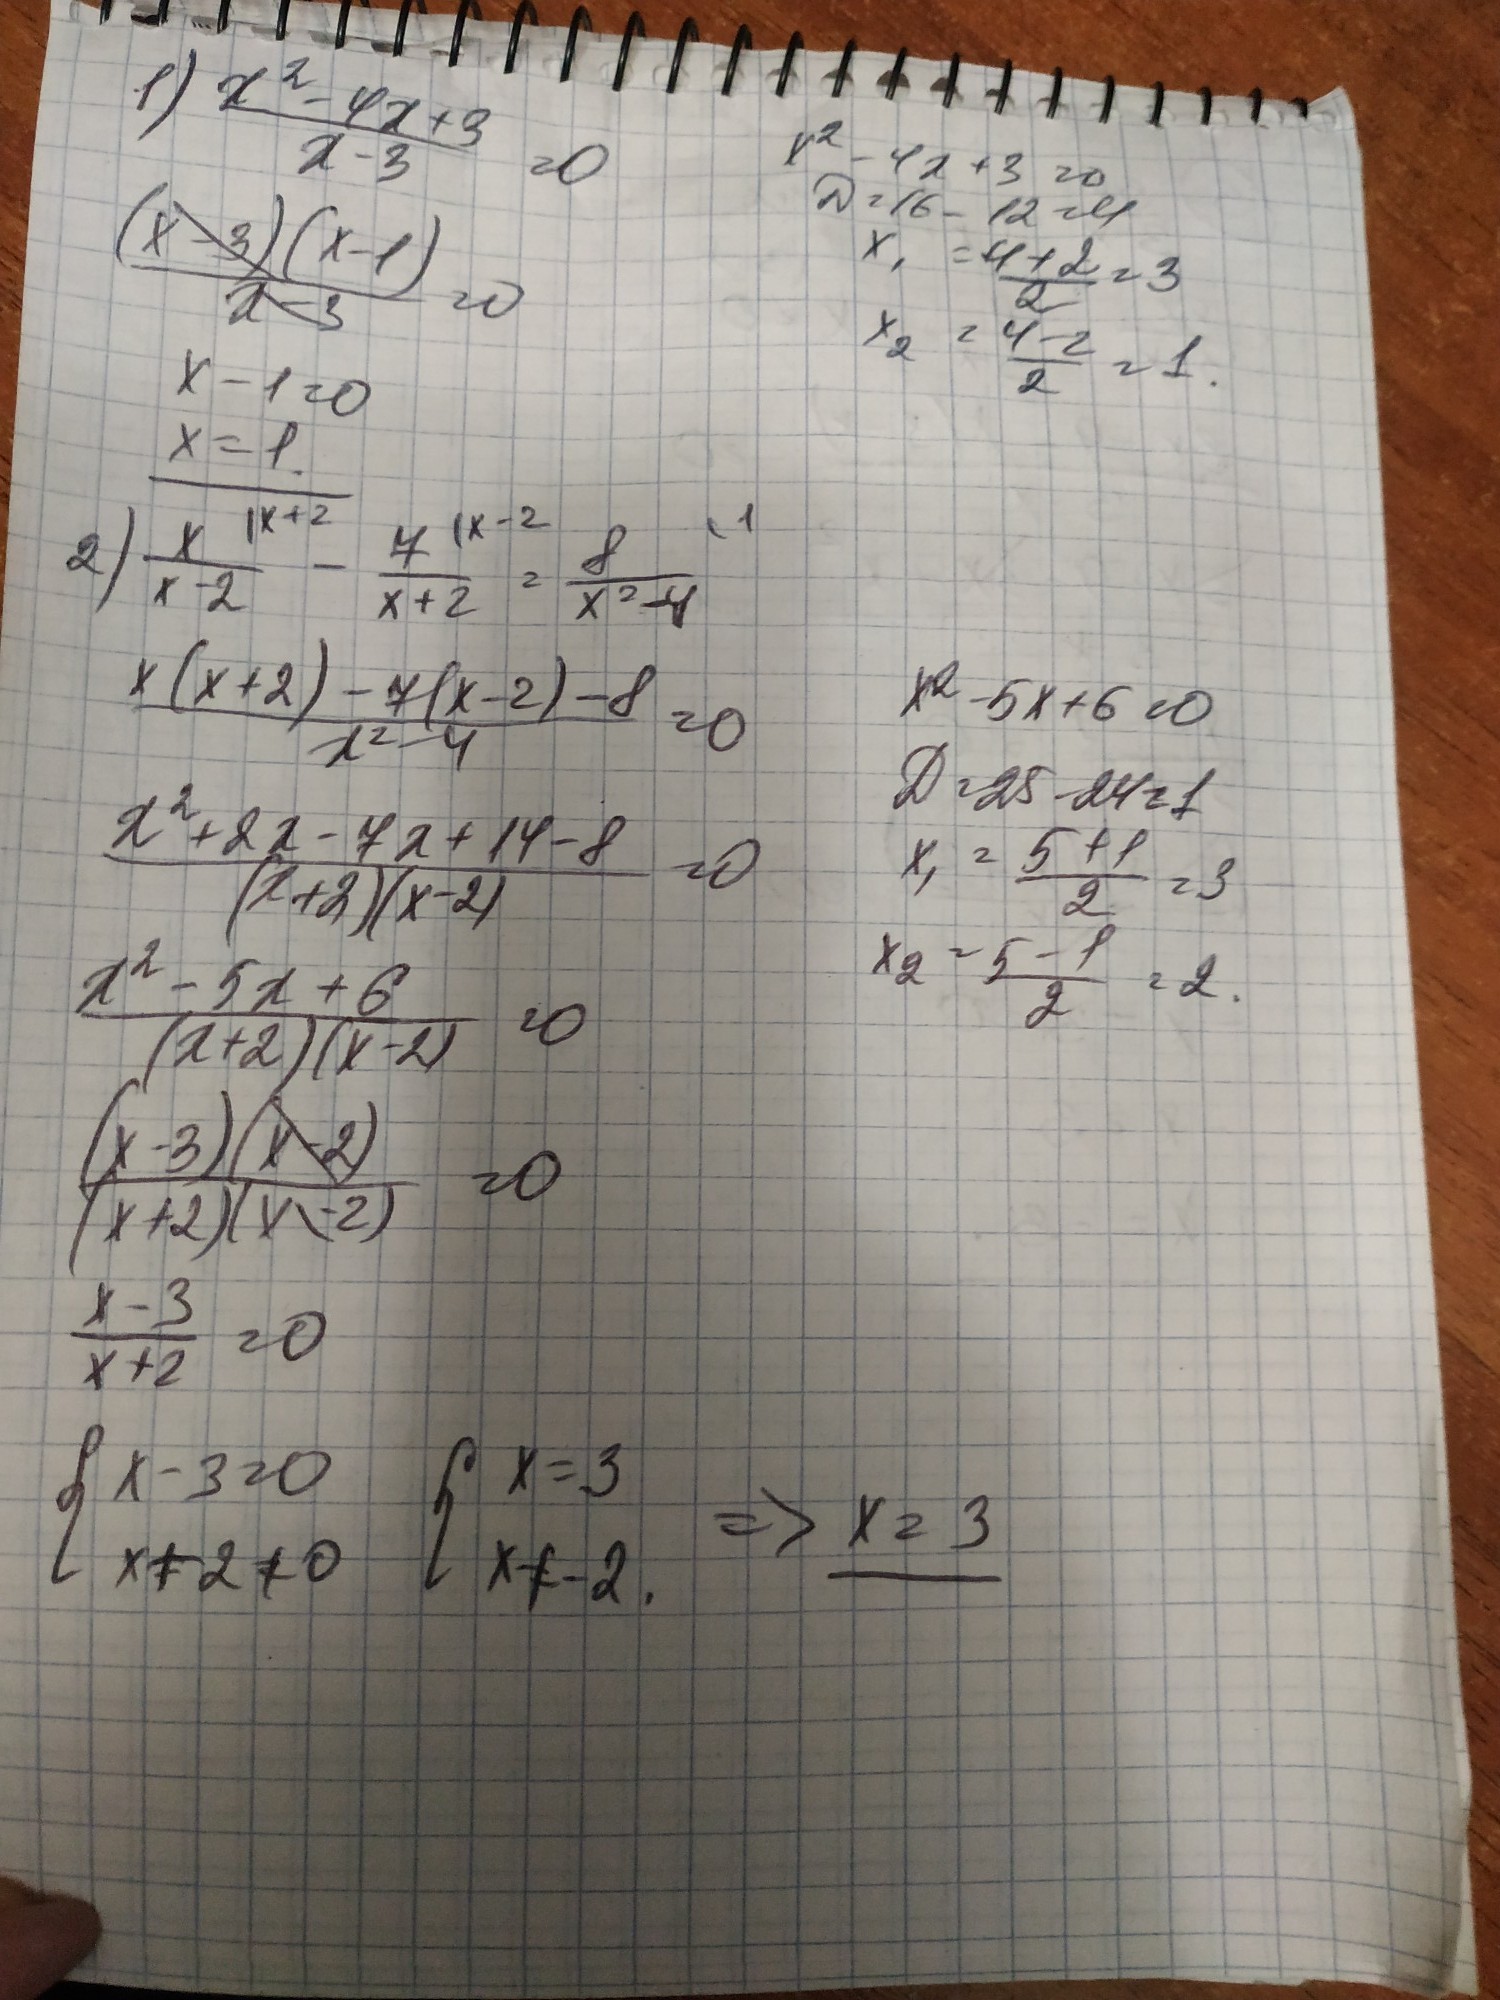 1) (x² - 4x + 3)/(x - 3) = 0
((x - 3)(x - 1))/(x - 3) = 0
x - 1 = 0
x = 1.
x² - 4x + 3 = 0
D = 16 - 12 = 4
x₁ = (4 + 2)/2 = 3
x₂ = (4 - 2)/2 = 1.
2) x/(x - 2) |x+2 - 7/(x + 2) |x-2 = 8/(x² - 4) \1
(x(x + 2) - 7(x - 2) - 8)/(x² - 4) = 0
(x² + 2x - 7x + 14 - 8)/((x + 2)(x - 2)) = 0
(x² - 5x + 6)/((x + 2)(x - 2)) = 0
((x - 3)(x - 2))/((x + 2)(x - 2)) = 0
(x - 3)/(x + 2) = 0
{ x - 3 = 0 { x = 3 => x = 3
x + 2 ≠ 0 x ≠ -2.
x² - 5x + 6 = 0
D = 25 - 24 = 1
x₁ = (5 + 1)/2 = 3
x₂ = (5 - 1)/2 = 2.